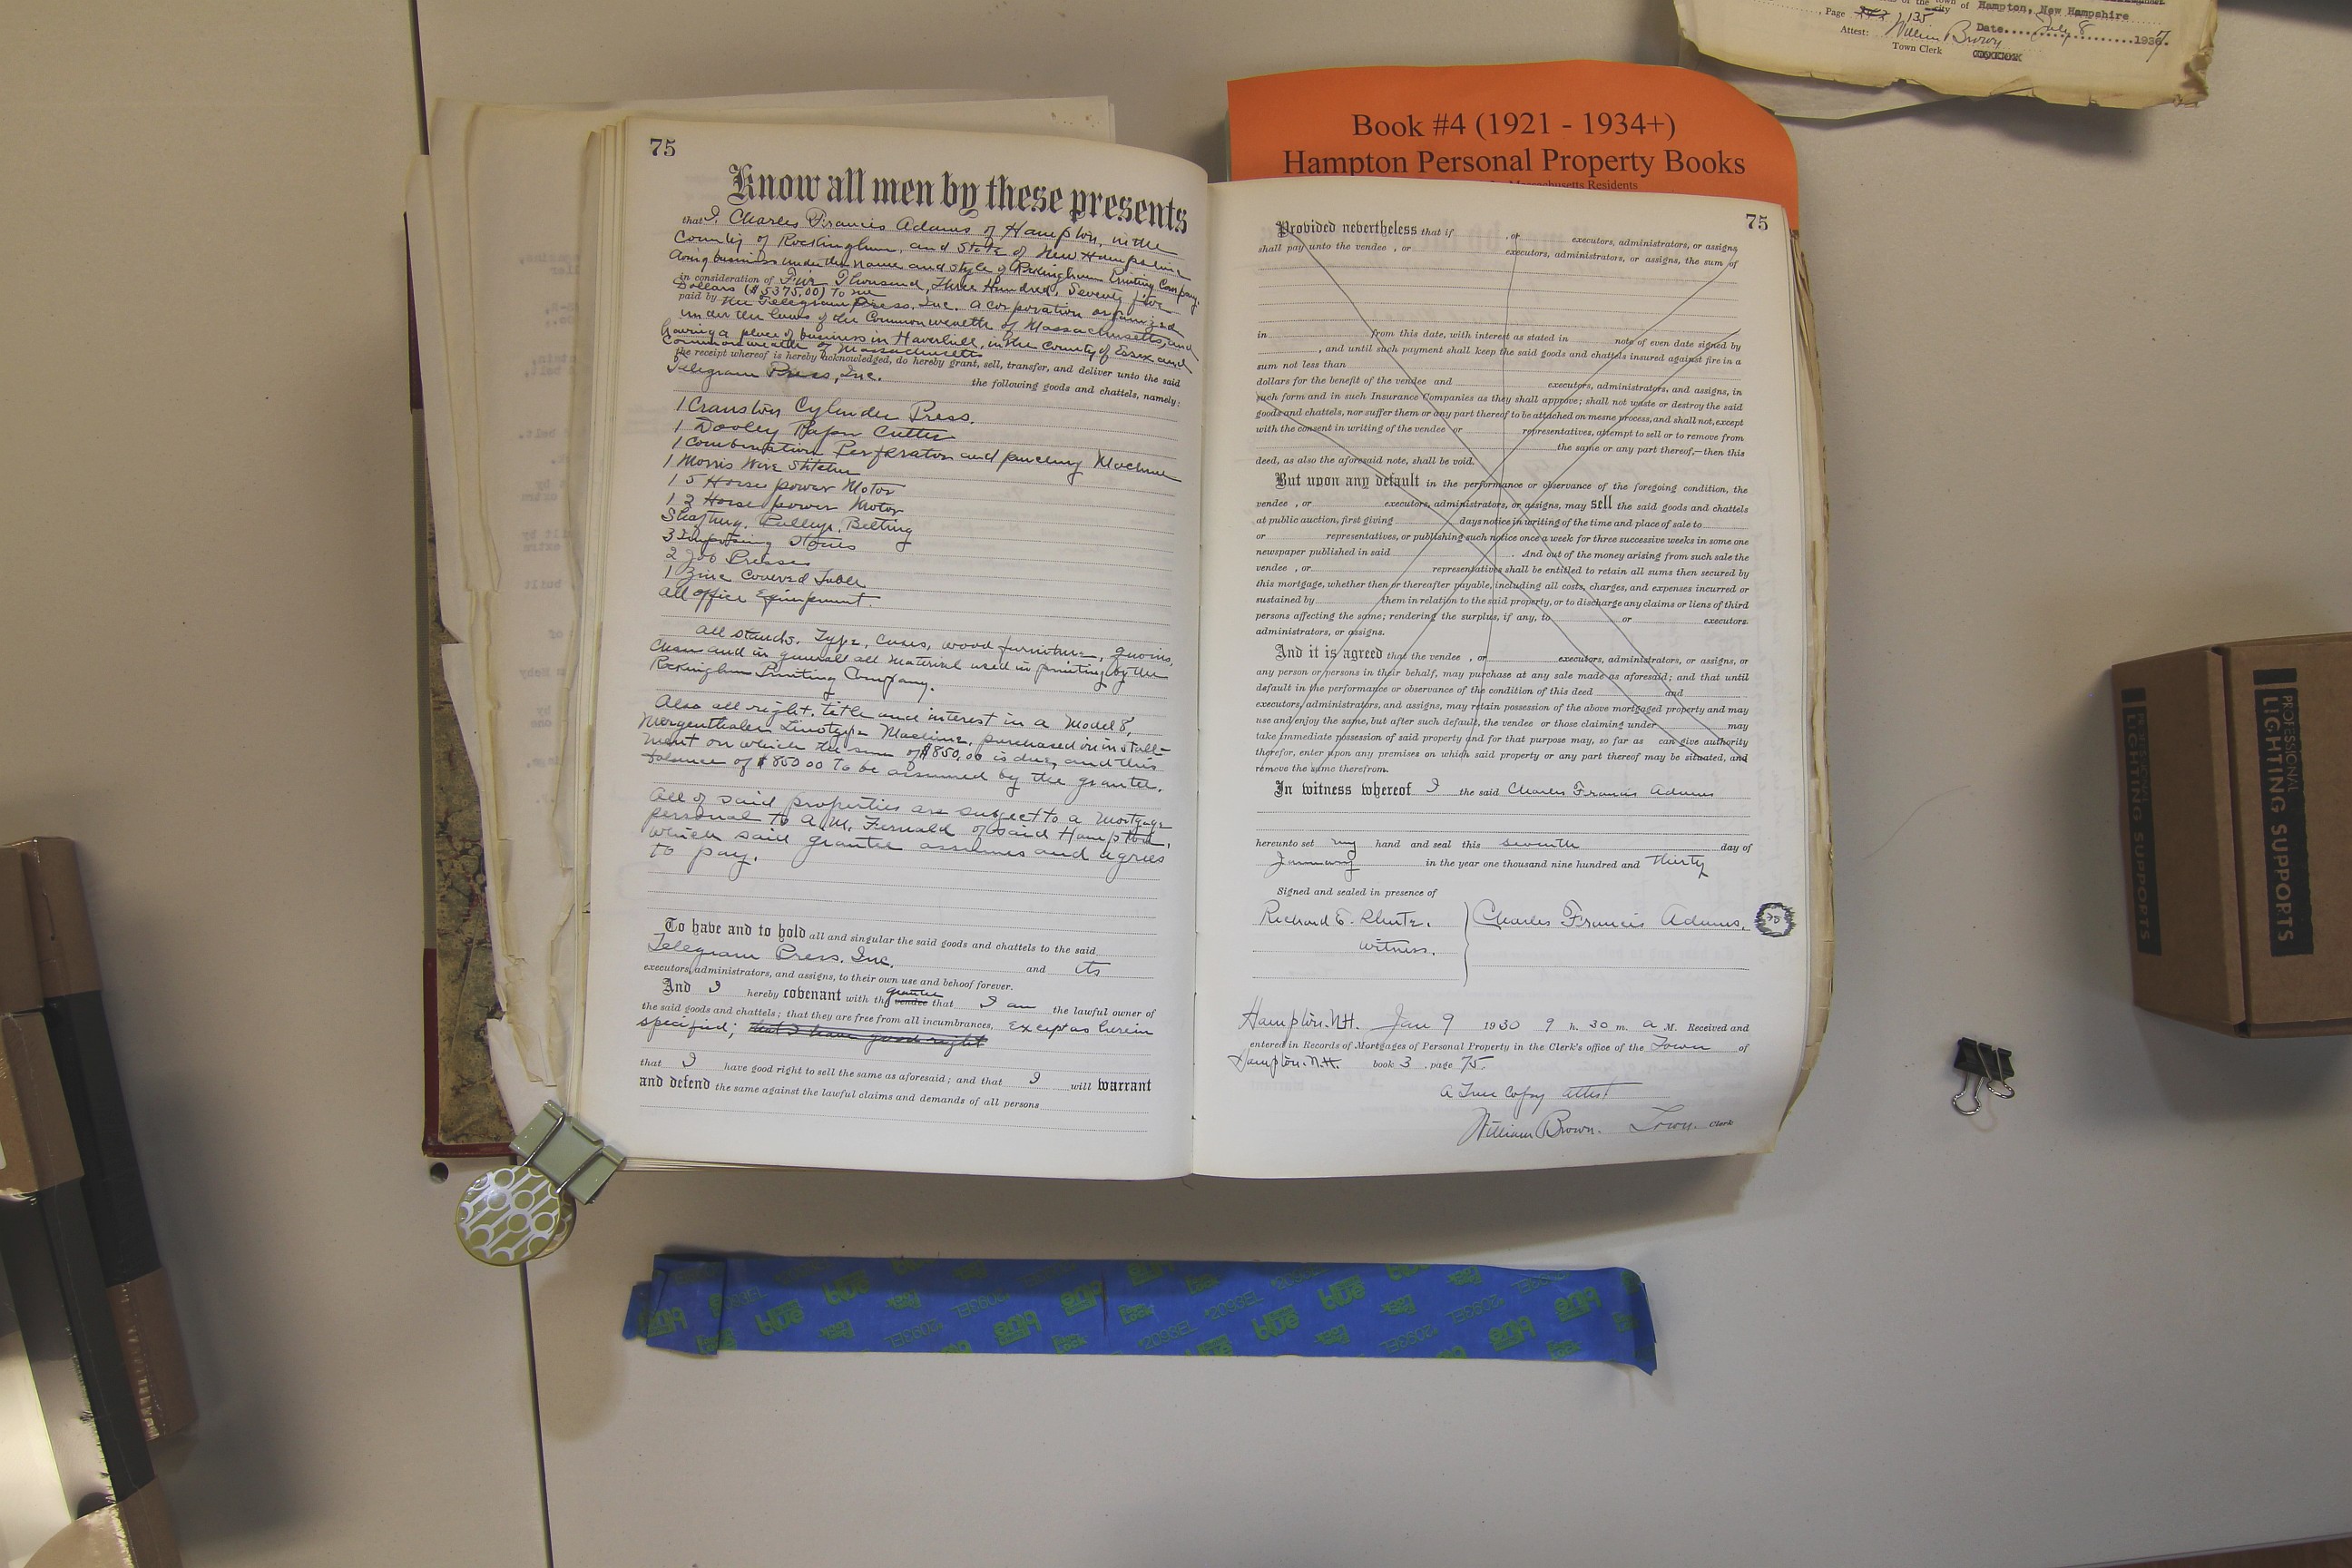 of the town of Hampton, New Hampshire
city
, Page 135
Date July 8 1937.
Attest: William Brown
Town Clerk
Book #4 (1921 - 1934+)
Hampton Personal Property Books
Massachusetts Residents
75
Know all men by these presents
that I, Charles Francis Adams of Hampton, in the
County of Rockingham, and State of New Hampshire
doing business under the name and style of Rockingham Printing Company,
in consideration of Five Thousand, Three Hundred, Seventy five
Dollars ($5375.00) To me
paid by the Telegram Press, Inc. a corporation organized
under the laws of the Commonwealth of Massachusetts, and
having a place of business in Haverhill, in the County of Essex and
Commonwealth of Massachusetts
the receipt whereof is hereby acknowledged, do hereby grant, sell, transfer, and deliver unto the said
Telegram Press, Inc. the following goods and chattels, namely:
1 Cranston Cylinder Press.
1 Dooley Paper Cutter
1 Combination Perforator and Machine
1 Morris Wire Stitcher
1 5 Horse power Motor
1 3 Horse power Motor
Shafting. Pulleys. Belting
3 Imposing Stones
2 Job Presses
1 Zinc Covered Table
All office Equipment.
All stands. Type, cases, wood furniture, quoins,
and in general all material used in printing by the
Rockingham Printing Company.
Also all right, title and interest in a Model 8,
Mergenthaler Linotype Machine, purchased on install-
ment on which the sum of $850.00 is due, and this
balance of $850.00 to be assumed by the grantee.
All of said properties are subject to a Mortgage
personal to A.M. Fernald of said Hampton,
which said grantee assumes and agrees
to pay.
To have and to hold all and singular the said goods and chattels to the said
Telegram Press. Inc. and its
executors, administrators, and assigns, to their own use and behoof forever.
And I hereby covenant with the grantee vendee that I am the lawful owner of
the said goods and chattels; that they are free from all incumbrances, Except as herein
specified; that I have good right
that I have good right to sell the same as aforesaid; and that I will warrant
and defend the same against the lawful claims and demands of all persons
75
Provided nevertheless that if , or executors, administrators, or assigns
shall pay unto the vendee , or executors, administrators, or assigns, the sum of
in from this date, with interest as stated in note of even date signed by
, and until such payment shall keep the said goods and chattels insured against fire in a
sum not less than
dollars for the benefit of the vendee and executors, administrators, and assigns, in
such form and in such Insurance Companies as they shall approve; shall not waste or destroy the said
goods and chattels, nor suffer them or any part thereof to be attached on mesne process, and shall not, except
with the consent in writing of the vendee or representatives, attempt to sell or to remove from
the same or any part thereof,—then this
deed, as also the aforesaid note, shall be void.
But upon any default in the performance or observance of the foregoing condition, the
vendee , or executors, administrators, or assigns, may sell the said goods and chattels
at public auction, first giving days notice in writing of the time and place of sale to
or representatives, or publishing such notice once a week for three successive weeks in some one
newspaper published in said . And out of the money arising from such sale the
vendee , or representatives shall be entitled to retain all sums then secured by
this mortgage, whether then or thereafter payable, including all costs, charges, and expenses incurred or
sustained by them in relation to the said property, or to discharge any claims or liens of third
persons affecting the same; rendering the surplus, if any, to or executors.
administrators, or assigns.
And it is agreed that the vendee , or executors, administrators, or assigns, or
any person or persons in their behalf, may purchase at any sale made as aforesaid; and that until
default in the performance or observance of the condition of this deed and
executors, administrators, and assigns, may retain possession of the above mortgaged property and may
use and enjoy the same, but after such default, the vendee or those claiming under may
take immediate possession of said property and for that purpose may, so far as can give authority
therefor, enter upon any premises on which said property or any part thereof may be situated, and
remove the same therefrom.
In witness whereof I the said Charles Francis Adams
hereunto set my hand and seal this seventh day of
January in the year one thousand nine hundred and Thirty
Signed and sealed in presence of
Richard E. Charles Francis Adams.
witness.
Hampton. N.H. Jan 9 1930 9 h. 30 m. a M. Received and
entered in Records of Mortgages of Personal Property in the Clerk's office of the Town of
Hampton. N.H. book 3 , page 75.
A True Copy attest
William Brown. Town. Clerk
PROFESSIONAL
LIGHTING SUPPORTS
PROFESSIONAL
LIGHTING SUPPORTS